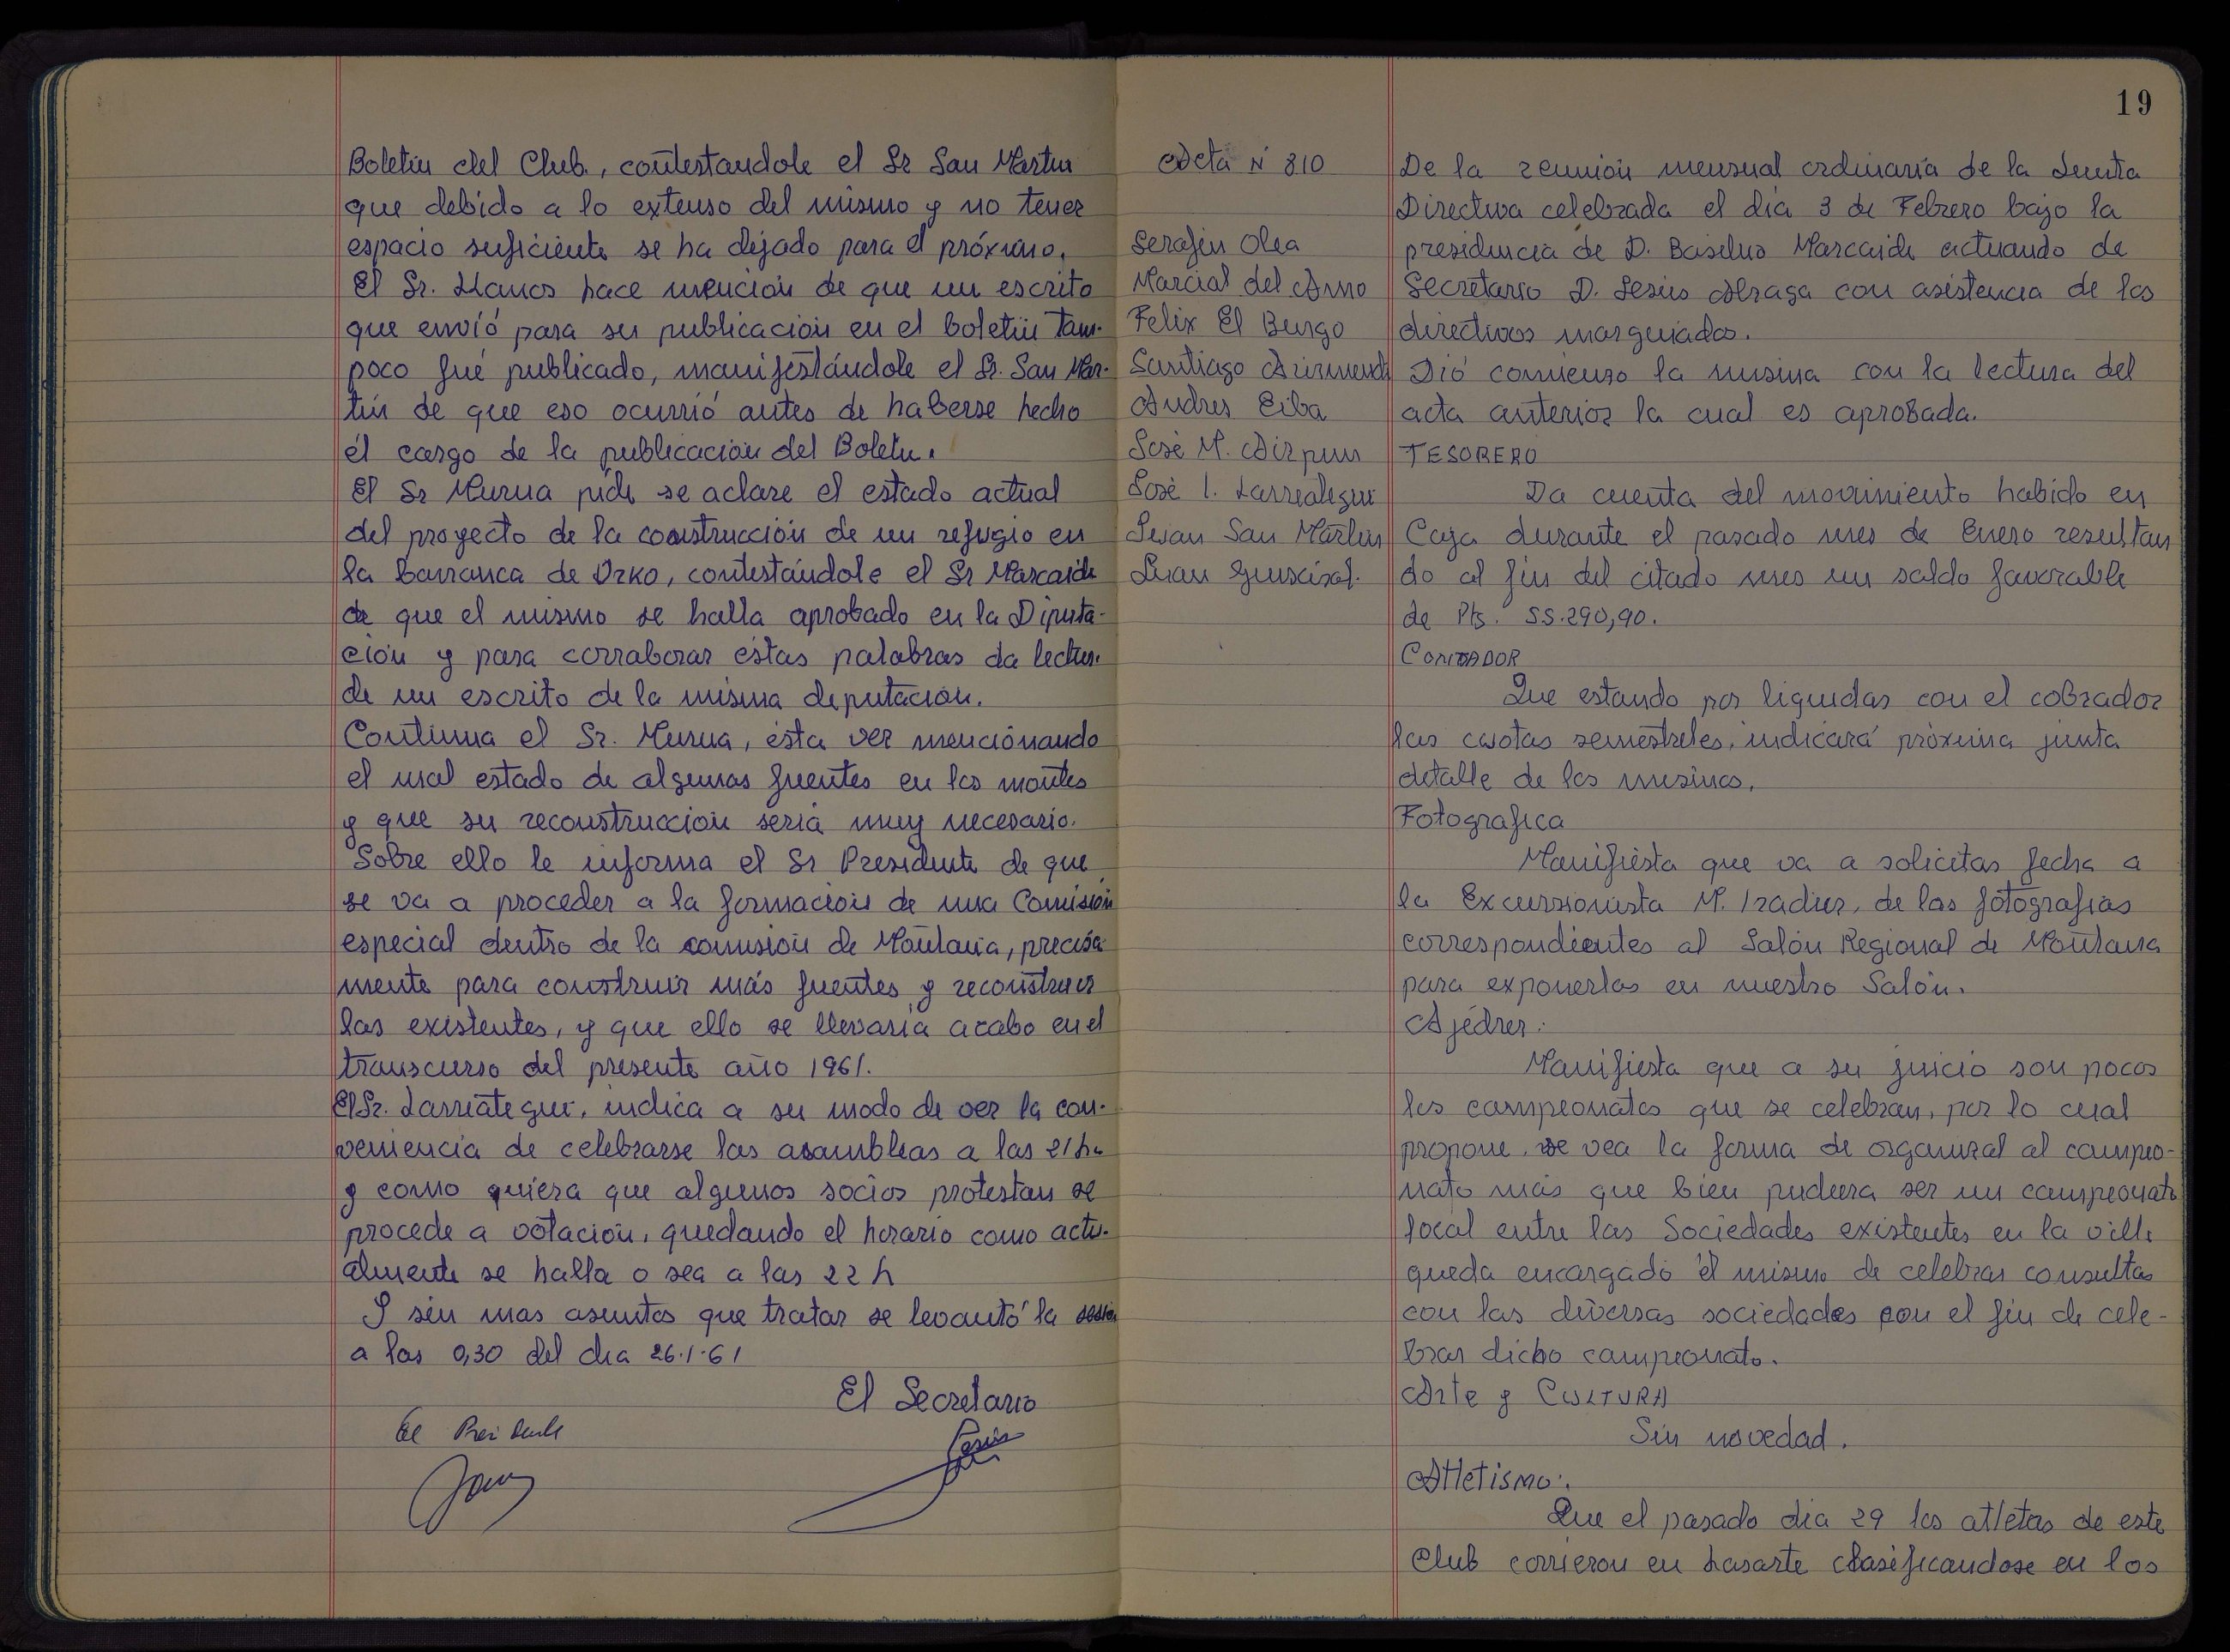 Boletin del Club., contestandole el Sr San Martin
que debido a lo extenso del mismo y no tener
espacio suficiente se ha dejado para el próximo.
El Sr. Llanos hace mención de que un escrito
que envió para su publicación en el boletín tam-
poco fué publicado, manifestándole el Sr. San Mar-
tin de que eso ocurrió antes de haberse hecho
él cargo de la publicación del Boletin.
El Sr Murua pide se aclare el estado actual
del proyecto de la construcción de un refugio en
la barranca de Urko, contestándole el Sr Marcaide
de que el mismo se halla aprobado en la Diputa-
ción y para corraborar éstas palabras da lectur.
de un escrito de la misma deputación.
Continua el Sr. Murua, ésta vez mencionando
el mal estado de algunas fuentes en los montes
y que su reconstruccion seria muy necesario.
Sobre ello le informa el Sr Presidente de que
se va a proceder a la formación de una Comisión
especial dentro de la comision de Montaña, precisa-
mente para construir más fuentes y reconstruir
las existentes, y que ello se llevaria a cabo en el
transcurso del presente año 1961.
El Sr. Larreategui, indica a su modo de ver la con-
veniencia de celebrarse las asambleas a las 21 hs
y como quiera que algunos socios protestan se
procede a votación, quedando el horario como actu-
almente se halla o sea a las 22 h
Y sin mas asuntos que tratar se levantó la sesión
a las 0,30 del dia 26-1-61
El Secretario
El Presidente
19
Acta N° 810
Serafin Olea
Marcial del Amo
Felix El Burgo
Santiago Arizmendi
Andres Eiba
José M. Aizpuru
José I. Larreategui
Juan San Martin
Juan
De la reunión mensual ordinaria de la Junta
Directiva celebrada el dia 3 de Febrero bajo la
presidencia de D. Basilio Marcaide actuando de
Secretario D. Jesús Alzaga con asistencia de los
directivos marguiados.
Dió comienzo la misma con la lectura del
acta anterior la cual es aprobada.
TESORERO
Da cuenta del movimiento habido en
Caja durante el pasado mes de Enero resultan
do al fin del citado mes un saldo favorable
de Pts. 55.290,90.
CONTADOR
Que estando por liquidar con el cobrador
las cuotas semestrales, indicará próxima junta
detalle de los mismos.
Fotografica
Manifiesta que va a solicitar fecha a
la Excursionista M. Iradier, de las fotografias
correspondientes al Salón Regional de Montaña
para exponerlas en nuestro Salón.
Ajédrez.
Manifiesta que a su juicio son pocos
los campeonatos que se celebran, por lo cual
propone, se vea la forma de organizal al campeo-
nato más que bien pudiera ser un campeonato
local entre las Sociedades existentes en la villa
queda encargado él mismo de celebrar consultas
con las diversas sociedades con el fin de cele-
brar dicho campeonato.
Arte y CULTURA
Sin novedad.
Atletismo:.
Que el pasado dia 29 los atletas de este
Club corrieron en Lasarte clasificandose en los